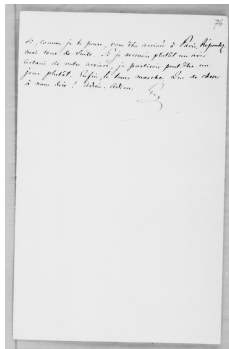 76
si, comme je le pense, vous êtes arrivé à Paris. Répondez
moi tout de suite. Si je recevais plutôt un avis
de votre arrivée, je partirais peut-être un
jour plutôt. Enfin, le temps marche. Que de choses
à nous dire ! Adieu. Adieu.